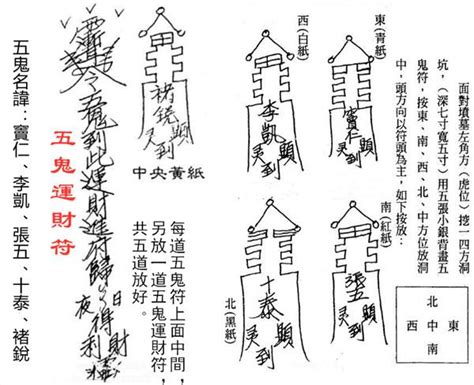 面對墳墓左角方(虎位)挖一四方洞
坑，(深七寸寬五寸)用五張小銀背畫五
鬼符，按東、南、西、北、中方位放洞
中，頭方向以符頭為主，如下按放：
北
西中東
南
東(青紙)
竇仁
顯
灵到
西(白紙)
李凱
顯
灵到
南(紅紙)
張五
顯
灵到
北(黑紙)
十泰
顯
灵到
褚銳
顯
灵到
中央黃紙
每道五鬼符上面中間，
另放一道五鬼運財符，
共五道放好。
令五鬼到此運財進符歸
日夜得財利
五鬼運財符
五鬼名諱：竇仁、李凱、張五、十泰、褚銳